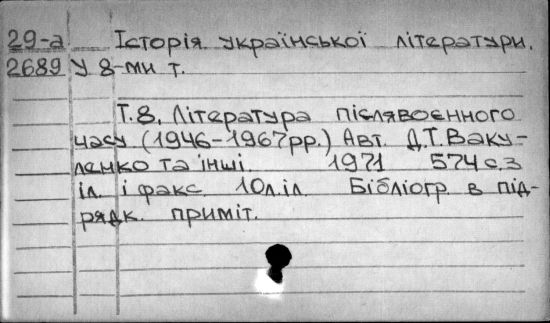 29-а Історія української літератури.
2689 У 8-ми т.
Т.8. Література післявоєнного
часу (1946-1967рр.) Авт. Д.Т.Ваку-
ленко та інші. 1971 574 с.з
іл. і факс. 10л.іл. Бібліогр. в під-
рядк. приміт.